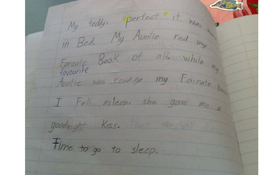 My teddy perfect it was
in Bed. My Auntie read my
favourite Book of all. while my
Auntie was reading my Fairate Book
I Fell asleep she gave me a
goodnight Kiss.
Time to go to sleep.